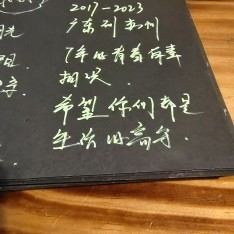 2017-2023
广东到苏州
7年的青春有幸
相识
希望你们都是
生活的高手.
光